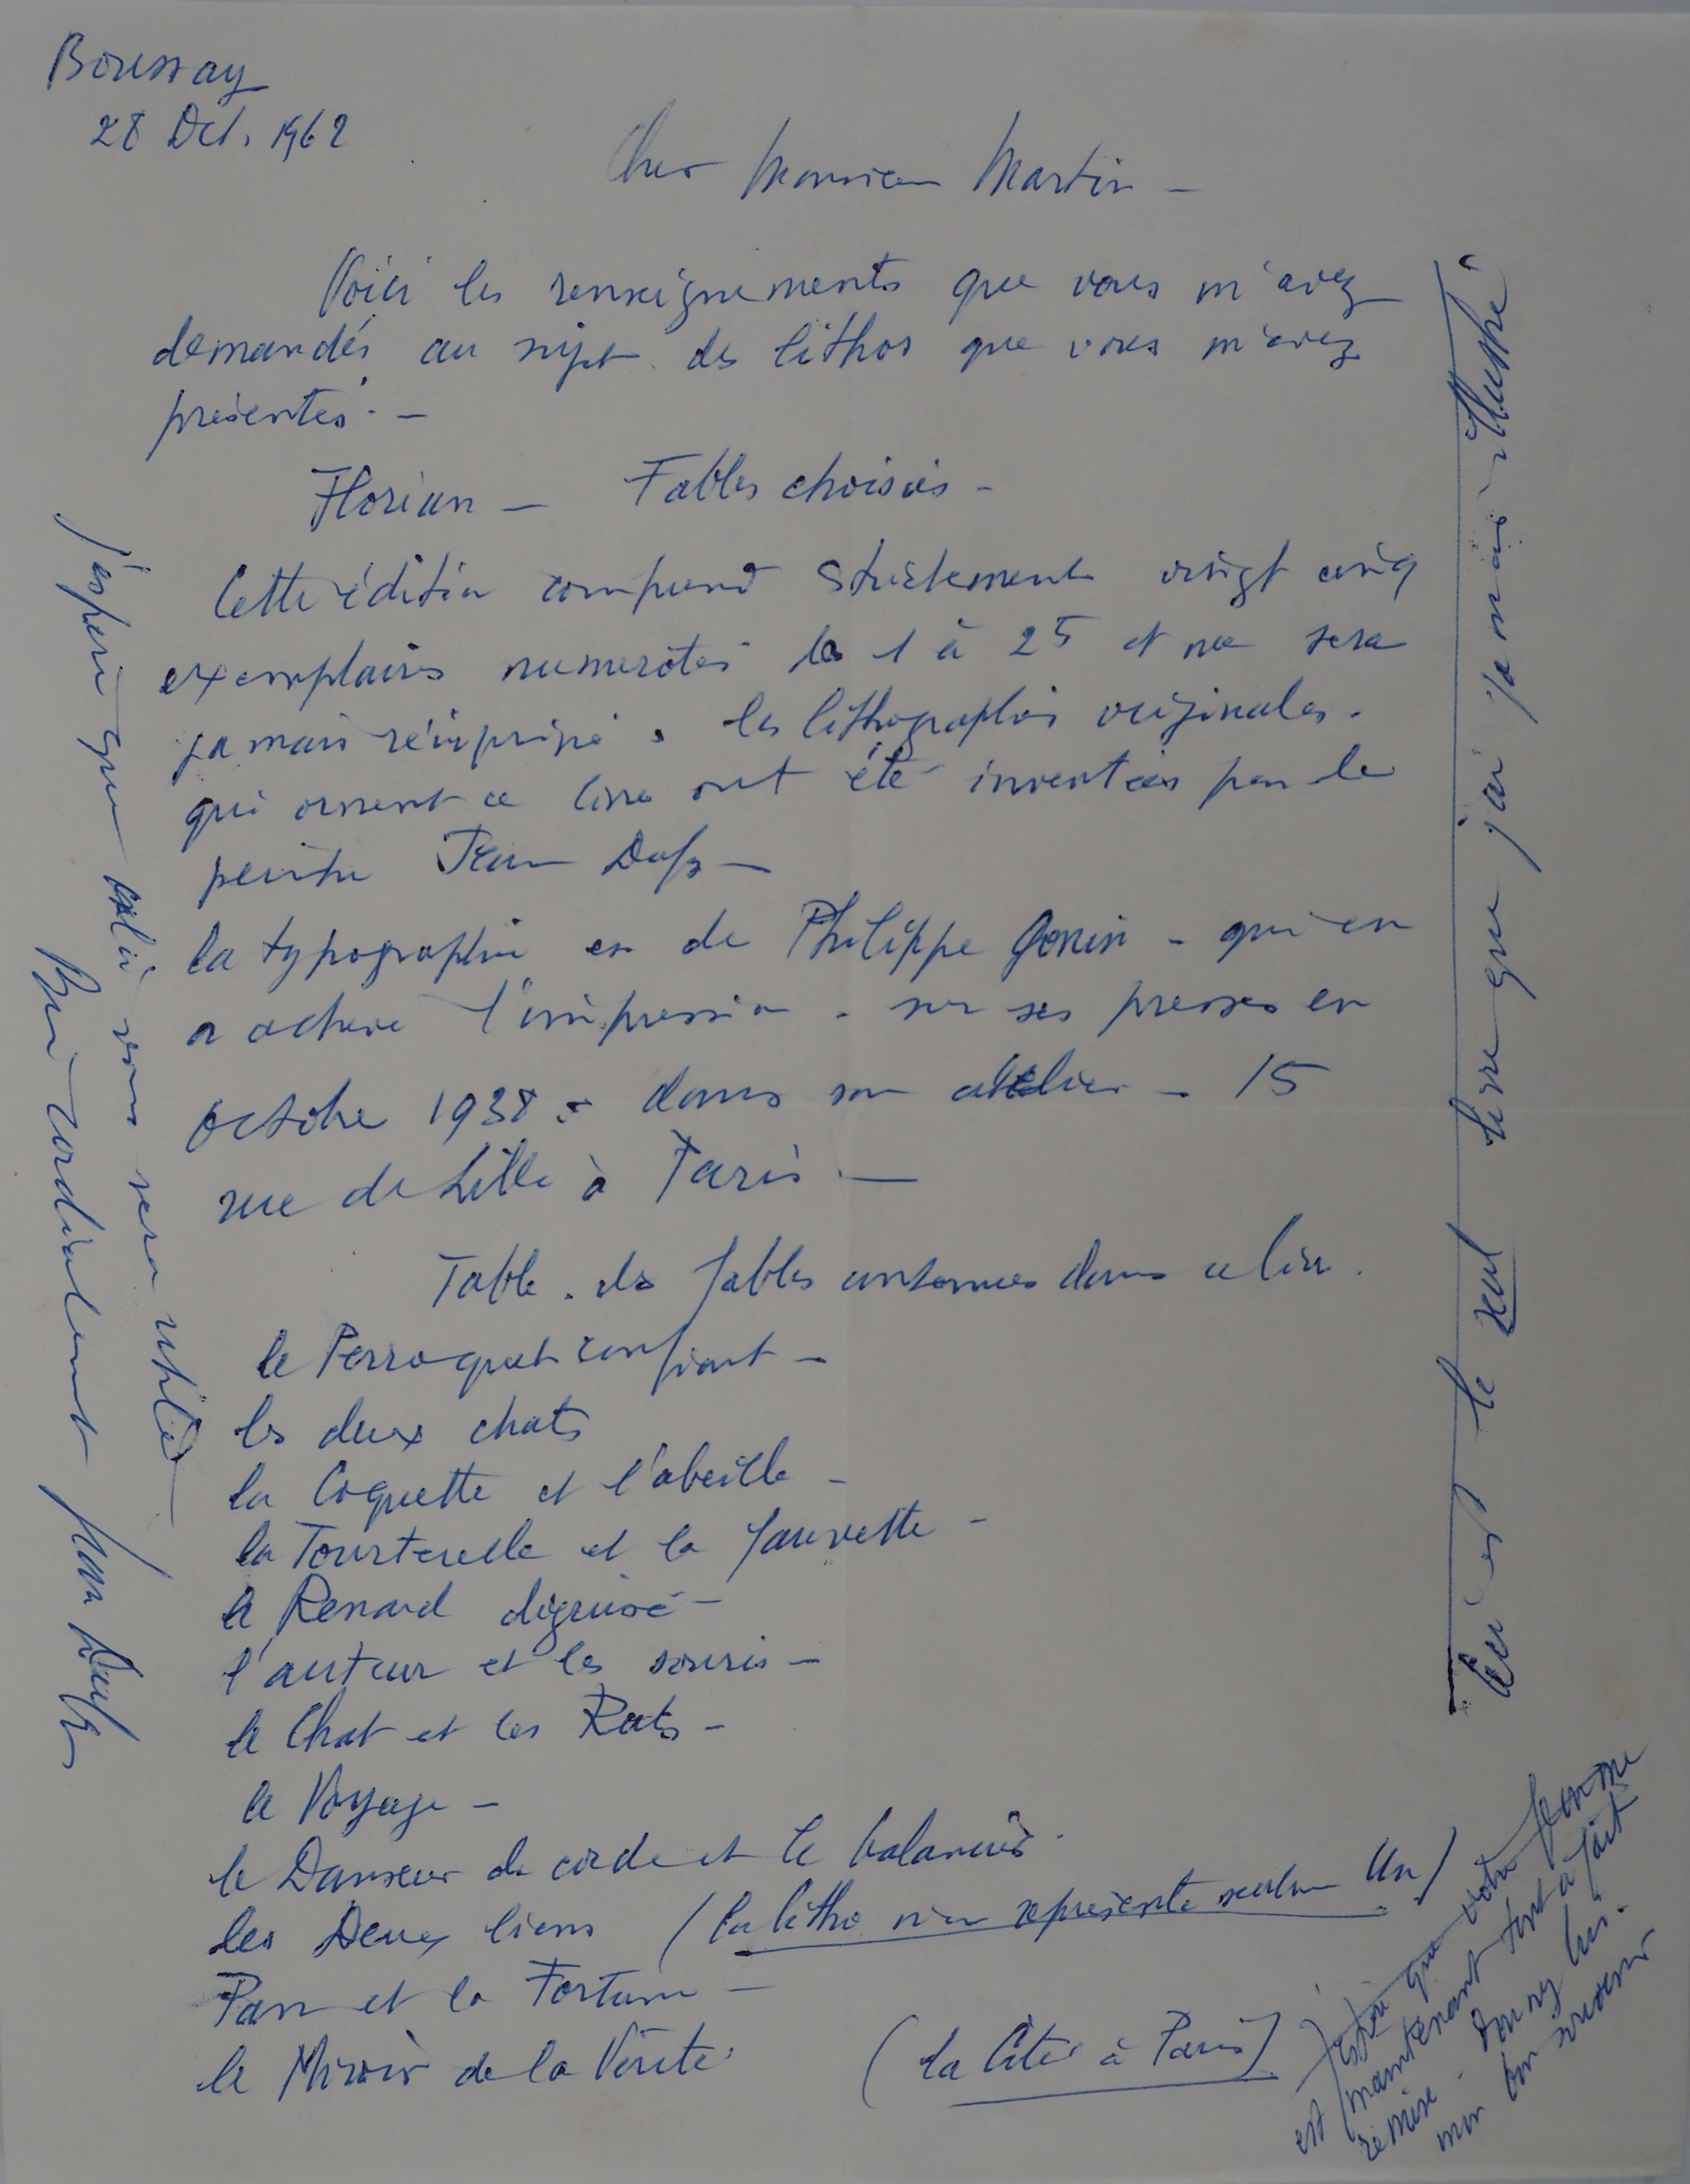 Boussay
28 Oct. 1962
Cher Monsieur Martin –
Voici les renseignements que vous m'avez
demandés au sujet des lithos que vous m'avez
présentés. –
Florian – Fables choisies –
Cette édition comprend strictement vingt cinq
exemplaires numérotés de 1 à 25 et ne sera
jamais réimprimé. les lithographies originales.
qui ornent ce livre ont été inventées par le
peintre Jean Dufy –
la typographie est de Philippe Gonin – qui en
a achevé l'impression – sur ses presses en
octobre 1938 – dans son atelier – 15
rue de Lille à Paris. –
Table. des fables contenues dans ce livre.
le Perroquet confiant –
les deux chats
la Coquette et l'abeille –
la Tourterelle et la fauvette –
le Renard déguisé –
l'auteur et les souris –
le Chat et les Rats –
le Voyage –
le Danseur de corde et le balancier.
les Deux lions (la litho n'en représente seulement Un)
Pan et la Fortune –
le Miroir de la Vérité.
(la Cité à Paris)
Ceci est le seul livre que j'ai jamais illustré
J'espère que votre femme
est maintenant tout à fait
remise. Donnez lui.
mon bon souvenir
j'espère que cela vous sera utile –
Bien cordialement Jean Dufy